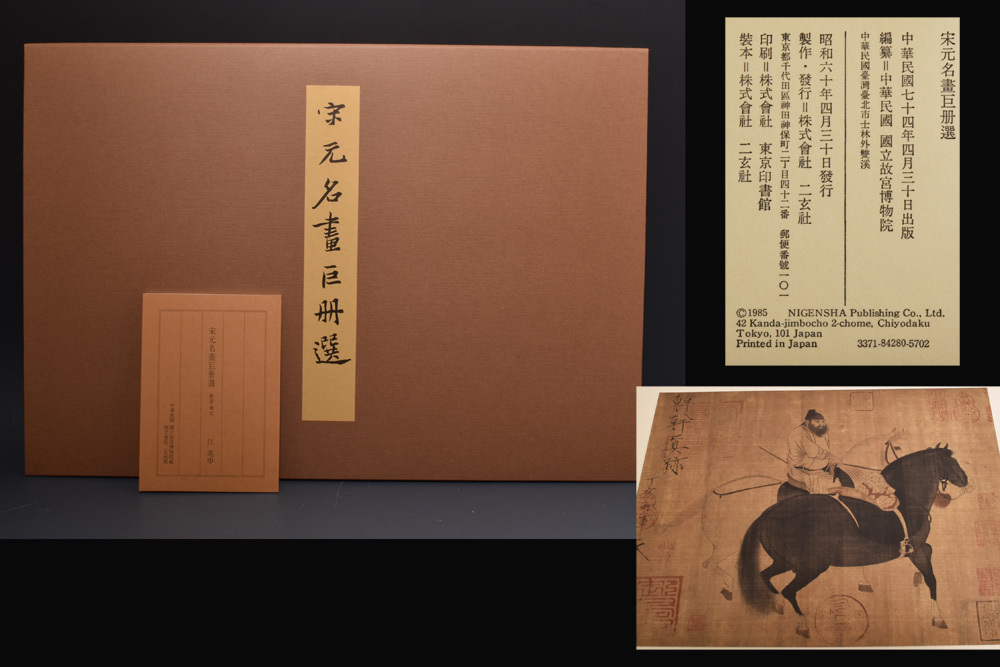 宋元名畫巨册選
宋元名畫巨册選
江兆申
宋元名畫巨册選
中華民國七十四年四月三十日出版
編纂＝中華民國 國立故宮博物院
中華民國臺灣臺北市士林外雙溪
昭和六十年四月三十日發行
製作・發行＝株式會社 二玄社
東京都千代田區神田神保町二丁目四十二番 郵便番號一〇一
印刷＝株式會社 東京印書館
裝本＝株式會社 二玄社
©1985 NIGENSHA Publishing Co., Ltd.
42 Kanda-jimbocho 2-chome, Chiyodaku
Tokyo, 101 Japan
Printed in Japan 3371-84280-5702
韓幹真跡